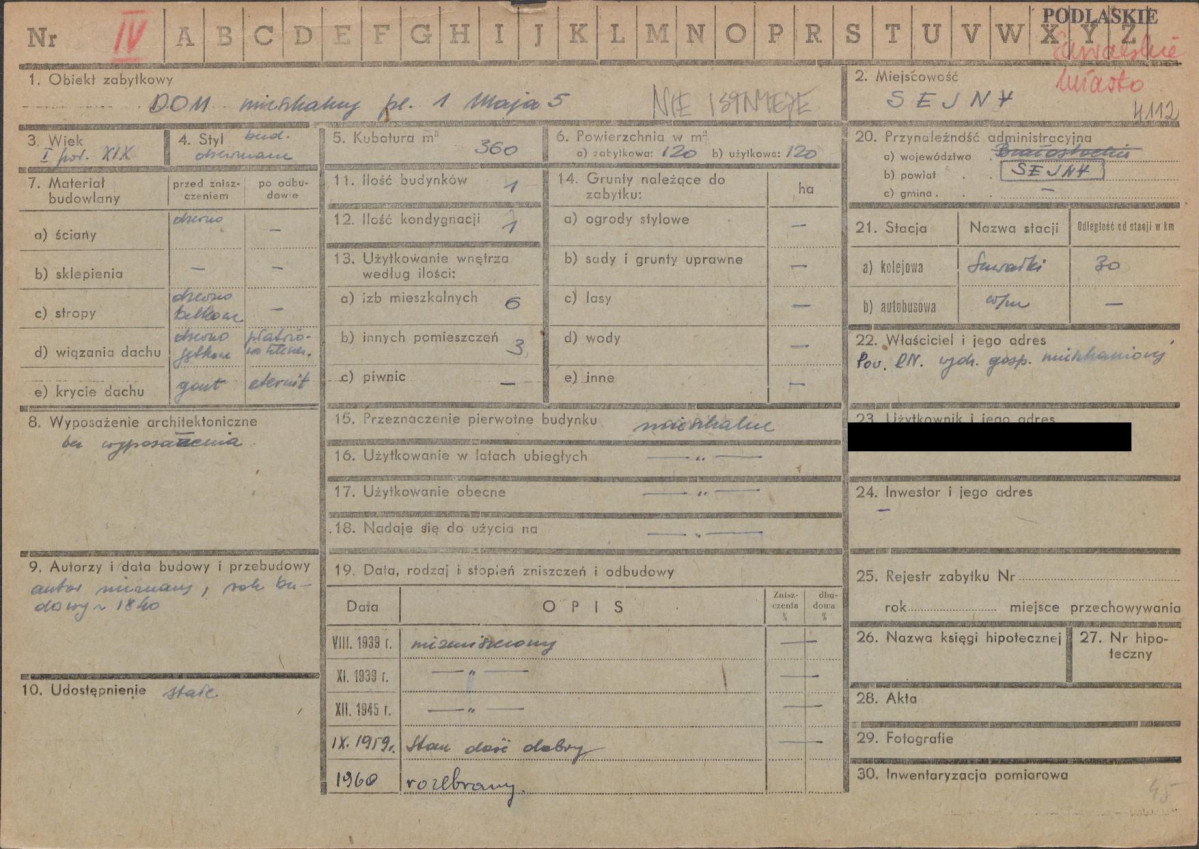 PODLASKIE
Nr IV A B C D E F G H I J K L M N O P R S T U V W X Y Z
Suwalskie
miasto
1. Obiekt zabytkowy
DOM mieszkalny pl. 1 Maja 5 NIE ISTNIEJE
2. Miejscowość
SEJNY
4112
3. Wiek
I poł. XIX
4. Styl bud.
drewniane
5. Kubatura m³ 360
6. Powierzchnia w m²
a) zabytkowa: 120 b) użytkowa: 120
7. Materiał budowlany
przed zniszczeniem
po odbudowie
a) ściany drewno —
b) sklepienia — —
c) stropy drewno belkowe —
d) wiązania dachu drewno jętkowe
e) krycie dachu gont eternit
8. Wyposażenie architektoniczne
bez wyposażenia
9. Autorzy i data budowy i przebudowy
autor nieznany, rok bu-
dowy ~ 1840
10. Udostępnienie stałe
11. Ilość budynków 1
12. Ilość kondygnacji 1
13. Użytkowanie wnętrza
według ilości:
a) izb mieszkalnych 6
b) innych pomieszczeń 3
c) piwnic —
14. Grunty należące do
zabytku:
ha
a) ogrody stylowe —
b) sady i grunty uprawne —
c) lasy —
d) wody —
e) inne —
15. Przeznaczenie pierwotne budynku mieszkalne
16. Użytkowanie w latach ubiegłych — „ —
17. Użytkowanie obecne — „ —
18. Nadaje się do użycia na — „ —
19. Data, rodzaj i stopień zniszczeń i odbudowy
Data OPIS Zniszczenia % dbudowa %
VIII. 1939 r. niezniszczony —
XI. 1939 r. — „ — —
XII. 1945 r. — „ — —
IX. 1959 r. Stan dość dobry —
1968 rozebrany.
20. Przynależność administracyjna
a) województwo Białostockie
b) powiat SEJNY
c) gmina —
21. Stacja Nazwa stacji Odległość od stacji w km
a) kolejowa Suwałki 30
b) autobusowa w/m —
22. Właściciel i jego adres
Pow. RN. wydz. gosp. mieszkaniowej
23. Użytkownik i jego adres
24. Inwestor i jego adres
—
25. Rejestr zabytku Nr
rok miejsce przechowywania
26. Nazwa księgi hipotecznej
27. Nr hipo-
teczny
28. Akta
29. Fotografie
30. Inwentaryzacja pomiarowa
45